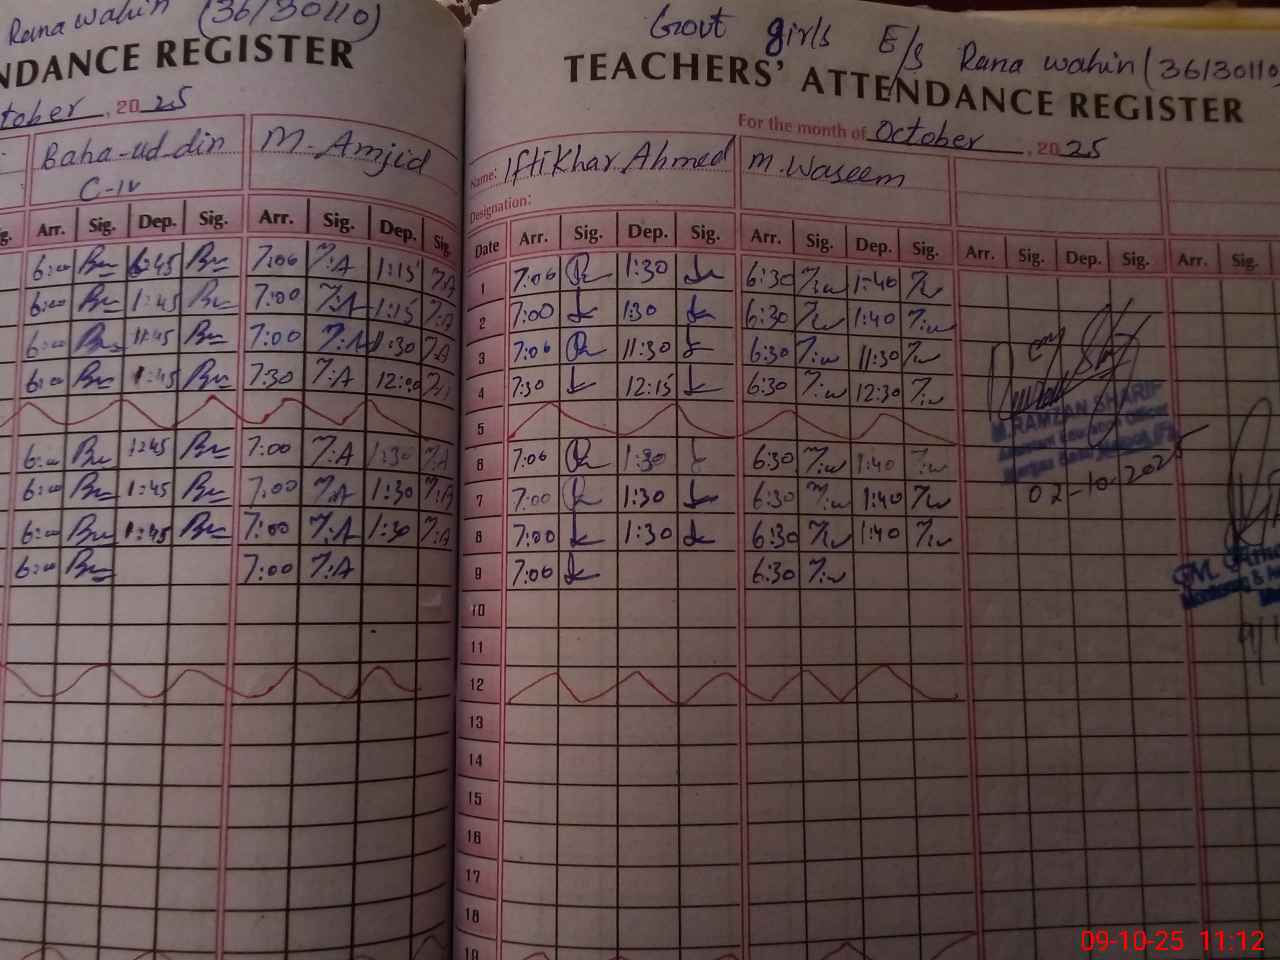 Rana wahin (36/30110)
NDANCE REGISTER
tober, 2025
Baha-ud-din M. Amjid
C-IV
Arr. Sig. Dep. Sig. Arr. Sig. Dep. Sig.
6:00 1:45 7:00 M.A 1:15 M.A
6:00 1:45 7:00 M.A 1:15 M.A
6:00 11:45 7:00 M.A 11:30 M.A
6:00 1:45 7:30 M.A M.A
6:00 1:45 7:00 M.A 1:30 M.A
6:00 1:45 7:00 M.A 1:30 M.A
6:00 1:45 7:00 M.A 1:30 M.A
6:00 7:00 M.A
Govt girls E/S Rana wahin (36/30110
TEACHERS' ATTENDANCE REGISTER
For the month of October, 2025
Name: Iftikhar Ahmed M. Waseem
Designation:
Date Arr. Sig. Dep. Sig. Arr. Sig. Dep. Sig. Arr. Sig. Dep. Sig. Arr. Sig.
1 7:00 1:30 6:30 M.w 1:40 M.w
2 7:00 1:30 6:30 M.w 1:40 M.w
3 7:00 11:30 6:30 M.w 11:30 M.w
4 7:30 12:15 6:30 M.w 12:30 M.w
5
6 7:00 1:30 6:30 M.w 1:40 M.w
7 7:00 1:30 6:30 M.w 1:40 M.w
8 7:00 1:30 6:30 M.w 1:40 M.w
9 7:00 6:30 M.w
10
11
12
13
14
15
16
17
18
19
M. RAMZAN SHARIF
02-10-2025
09-10-25 11:12